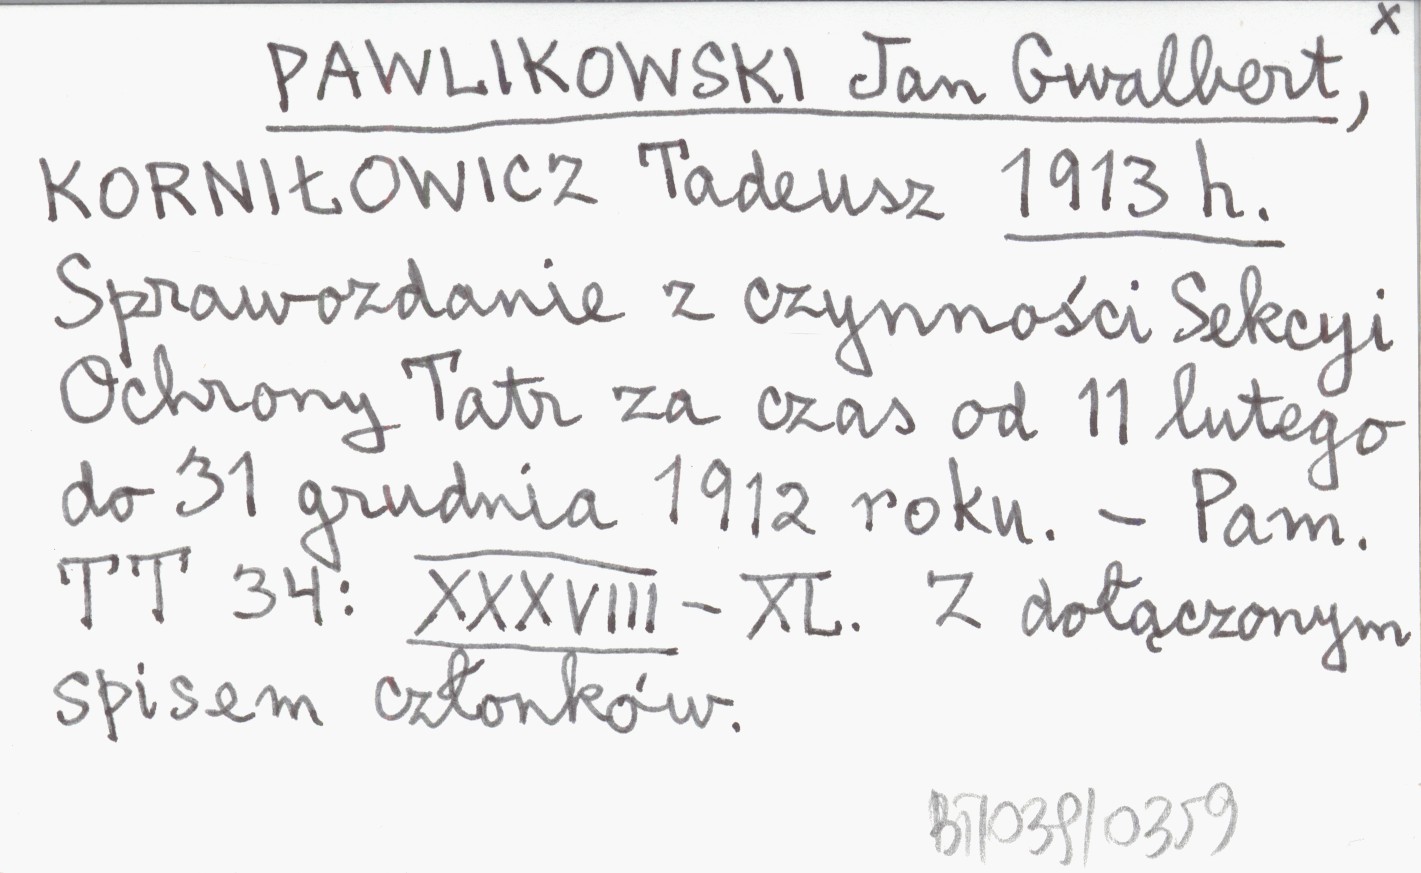 x
PAWLIKOWSKI Jan Gwalbert,
KORNIŁOWICZ Tadeusz 1913 h.
Sprawozdanie z czynności Sekcyi
Ochrony Tatr za czas od 11 lutego
do 31 grudnia 1912 roku. – Pam.
TT 34: XXXVIII – XL. Z dołączonym
spisem członków.